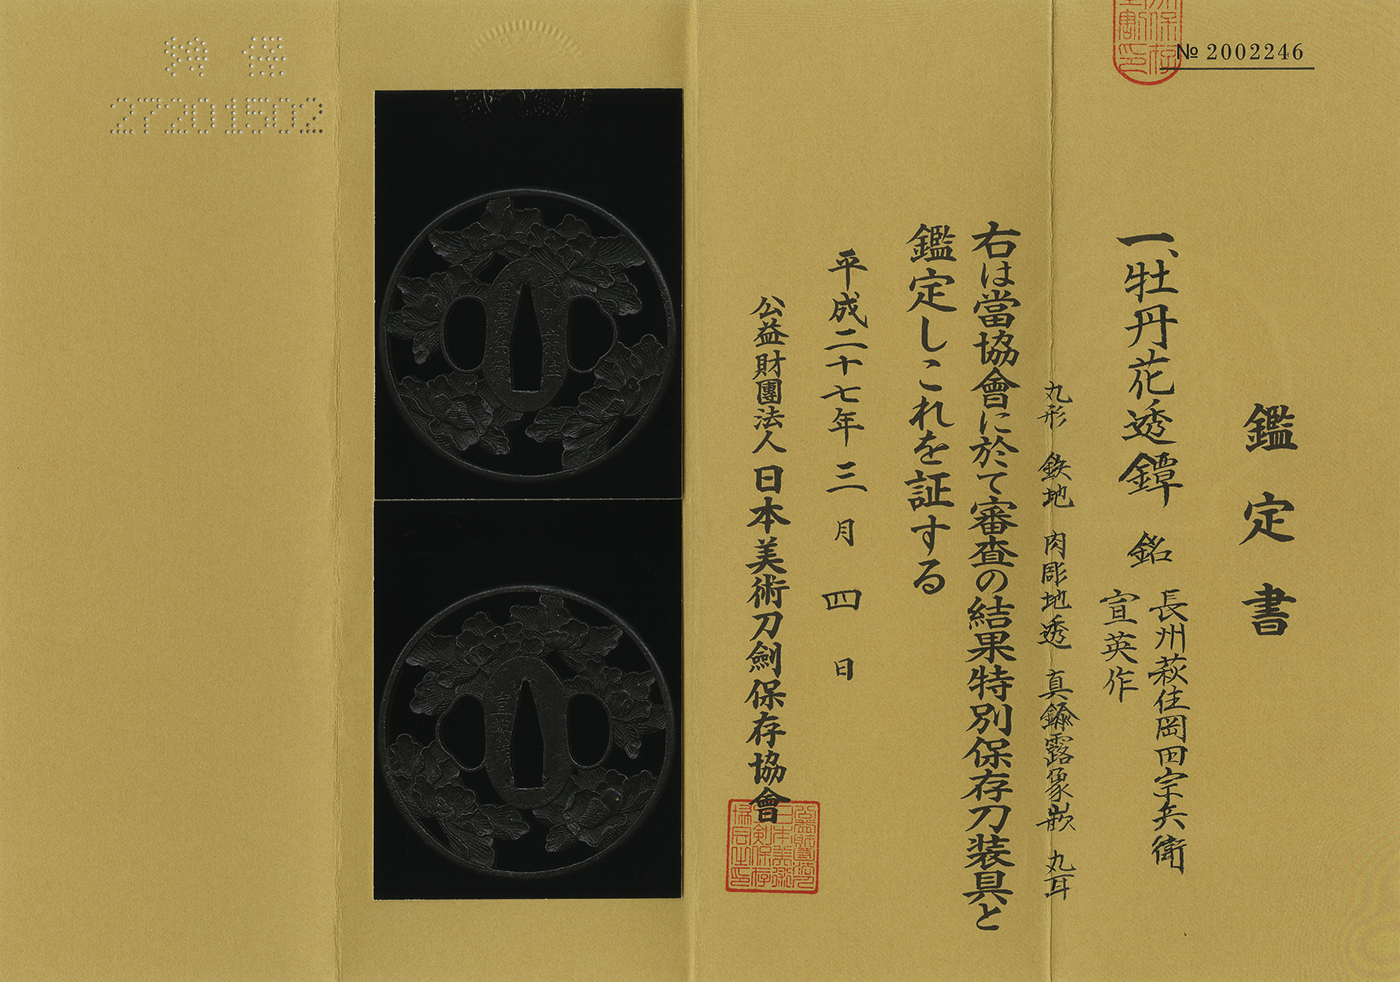 № 2002246
鑑定書
一、牡丹花透鐔 銘 長州萩住岡田宗兵衛
宣英作
丸形 鉄地 肉彫地透 真鍮露象嵌 丸耳
右は當協會に於て審査の結果特別保存刀装具と
鑑定しこれを証する
平成二十七年三月四日
公益財團法人日本美術刀劍保存協會
特保
27201502